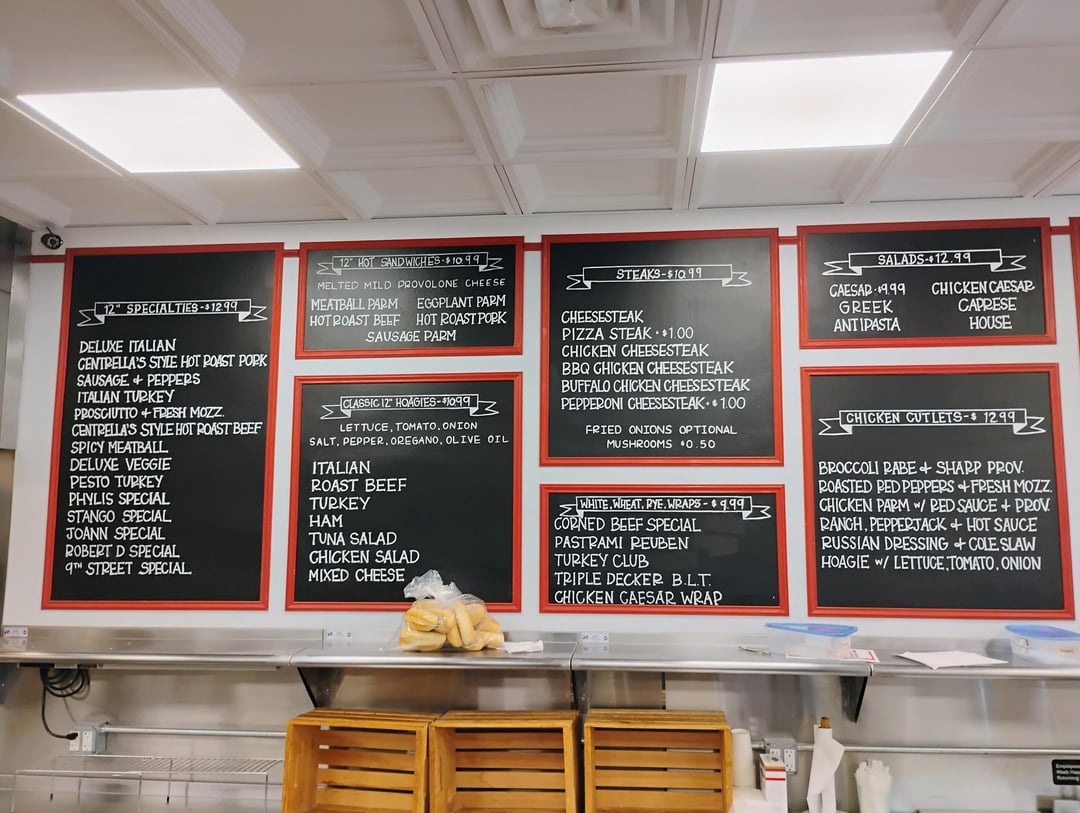 12" SPECIALTIES - $12.99
DELUXE ITALIAN
CENTRELLA'S STYLE HOT ROAST PORK
SAUSAGE & PEPPERS
ITALIAN TURKEY
PROSCIUTTO & FRESH MOZZ.
CENTRELLA'S STYLE HOT ROAST BEEF
SPICY MEATBALL
DELUXE VEGGIE
PESTO TURKEY
PHYLIS SPECIAL
STANGO SPECIAL
JOANN SPECIAL
ROBERT D SPECIAL
9TH STREET SPECIAL
12" HOT SANDWICHES - $10.99
MELTED MILD PROVOLONE CHEESE
MEATBALL PARM EGGPLANT PARM
HOT ROAST BEEF HOT ROAST PORK
SAUSAGE PARM
CLASSIC 12" HOAGIES - $10.99
LETTUCE, TOMATO, ONION
SALT, PEPPER, OREGANO, OLIVE OIL
ITALIAN
ROAST BEEF
TURKEY
HAM
TUNA SALAD
CHICKEN SALAD
MIXED CHEESE
STEAKS - $10.99
CHEESESTEAK
PIZZA STEAK · $1.00
CHICKEN CHEESESTEAK
BBQ CHICKEN CHEESESTEAK
BUFFALO CHICKEN CHEESESTEAK
PEPPERONI CHEESESTEAK · $1.00
FRIED ONIONS OPTIONAL
MUSHROOMS $0.50
WHITE, WHEAT, RYE, WRAPS - $9.99
CORNED BEEF SPECIAL
PASTRAMI REUBEN
TURKEY CLUB
TRIPLE DECKER B.L.T.
CHICKEN CAESAR WRAP
SALADS - $12.99
CAESAR · $9.99 CHICKEN CAESAR
GREEK CAPRESE
ANTIPASTA HOUSE
CHICKEN CUTLETS - $12.99
BROCCOLI RABE & SHARP PROV.
ROASTED RED PEPPERS & FRESH MOZZ.
CHICKEN PARM W/ RED SAUCE & PROV.
RANCH, PEPPERJACK & HOT SAUCE
RUSSIAN DRESSING & COLE SLAW
HOAGIE W/ LETTUCE, TOMATO, ONION